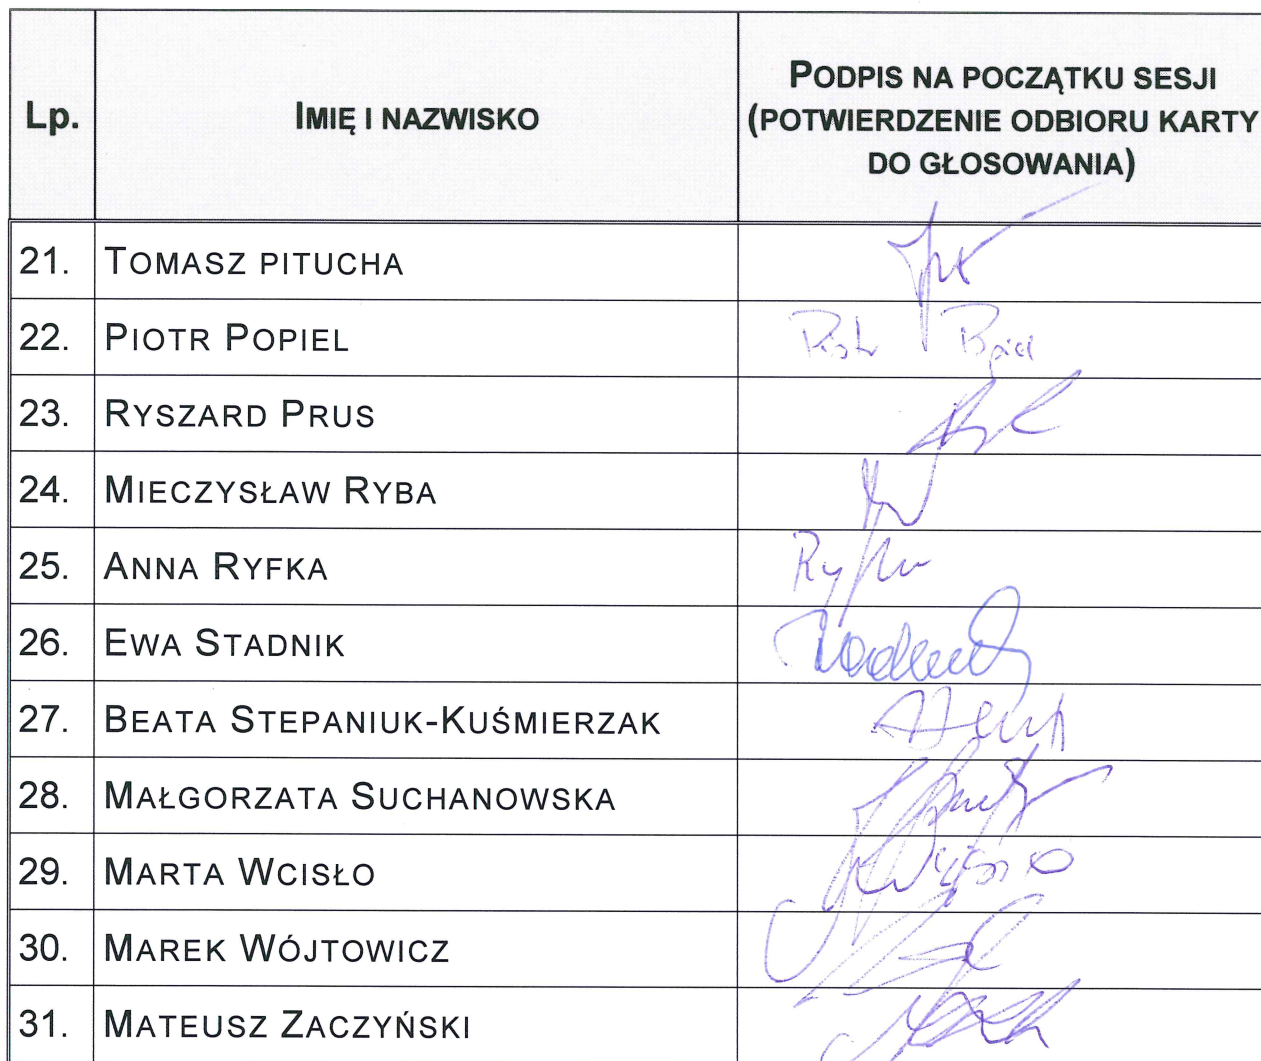 Lp. IMIĘ I NAZWISKO PODPIS NA POCZĄTKU SESJI
(POTWIERDZENIE ODBIORU KARTY
DO GŁOSOWANIA)
21. TOMASZ PITUCHA
22. PIOTR POPIEL
23. RYSZARD PRUS
24. MIECZYSŁAW RYBA
25. ANNA RYFKA
26. EWA STADNIK
27. BEATA STEPANIUK-KUŚMIERZAK
28. MAŁGORZATA SUCHANOWSKA
29. MARTA WCISŁO
30. MAREK WÓJTOWICZ
31. MATEUSZ ZACZYŃSKI